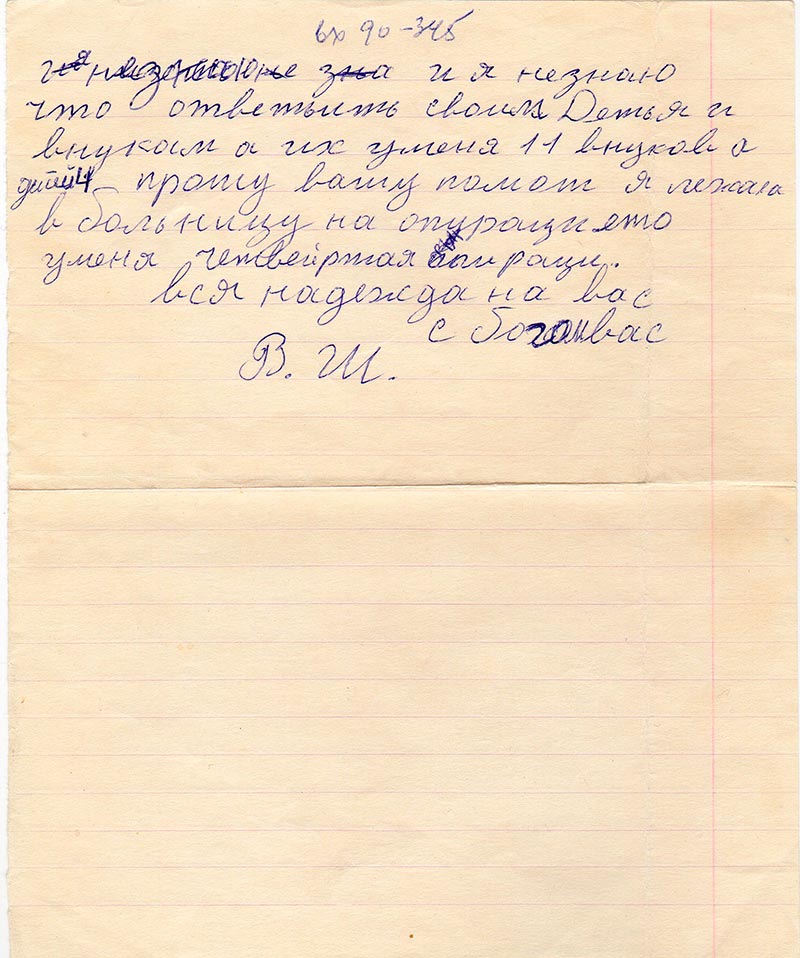 вх 90-345
и я незнаю
что ответьить своим Детья и
внукам а их уменя 11 внуков а
детей 4 прошу вашу помош я лежала
в больницу на опурацију ето
уменя четвейртая опираци.
вся надежда на вас
с богом вас
В. Ш.